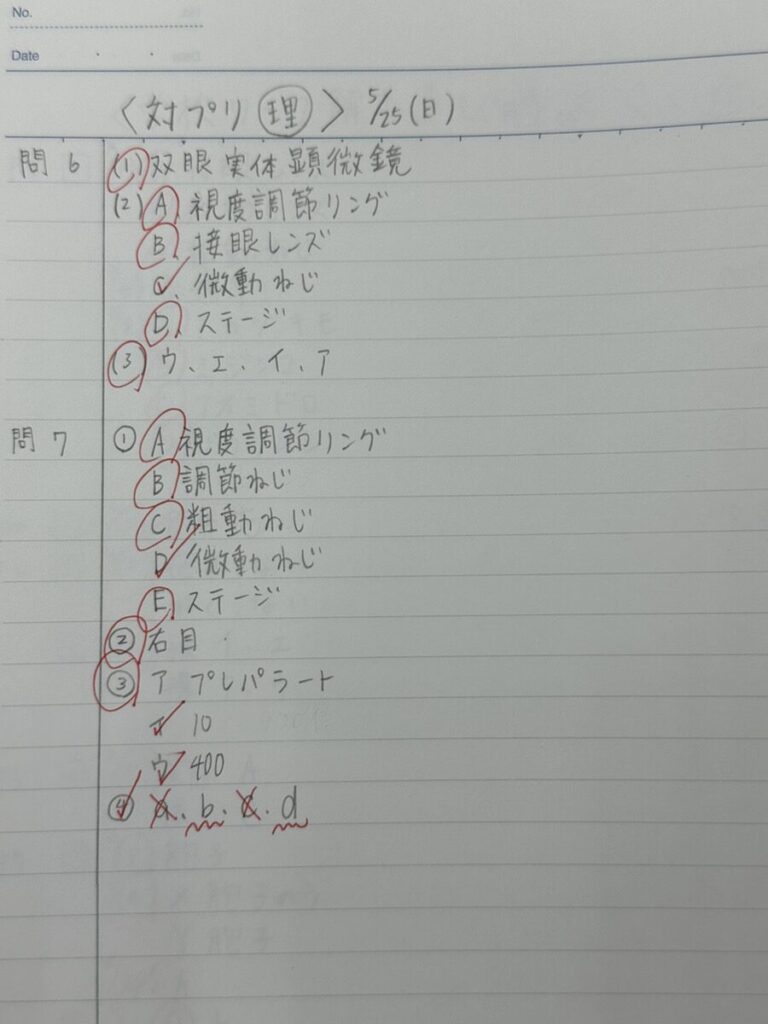 No.
Date
〈対プリ 理〉 5/25(日)
問6 (1) 双眼実体顕微鏡
(2) A 視度調節リング
B 接眼レンズ
C 微動ねじ
D ステージ
(3) ウ、エ、イ、ア
問7 ① A 視度調節リング
B 調節ねじ
C 粗動ねじ
D 微動ねじ
E ステージ
② 右目
③ ア プレパラート
10
ウ 400
④ a. b. c. d